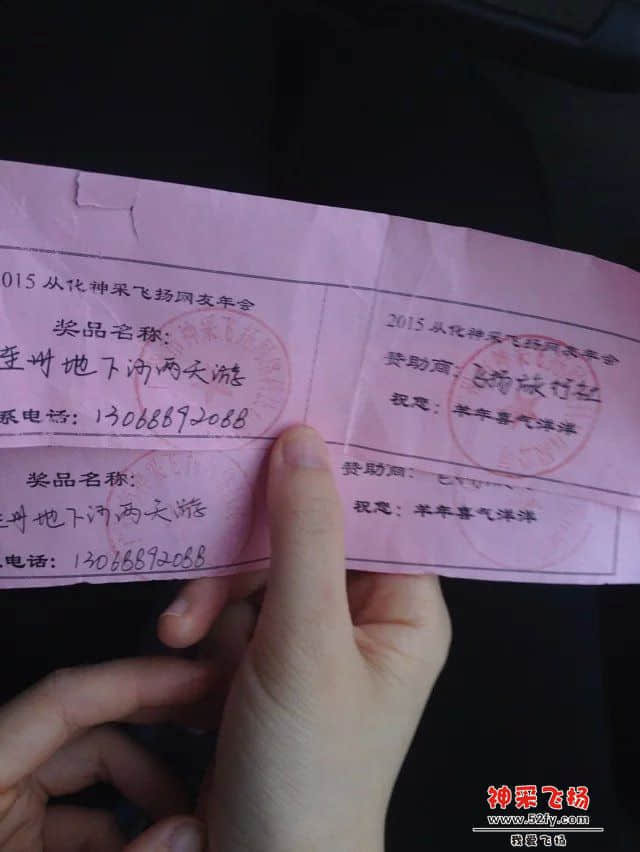 2015 从化神采飞扬网友年会
奖品名称：
连州地下河两天游
系电话：13068892088
2015 从化神采飞扬网友年会
赞助商：飞扬旅行社
祝您：羊年喜气洋洋
奖品名称：
连州地下河两天游
电话：13068892088
赞助商：
祝您：羊年喜气洋洋
神采飞扬
www.52fy.com
我爱飞扬